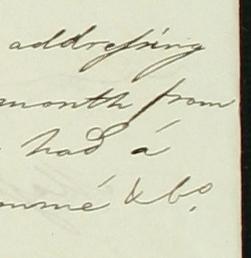 addressing
month from
had a
ommé & Co.